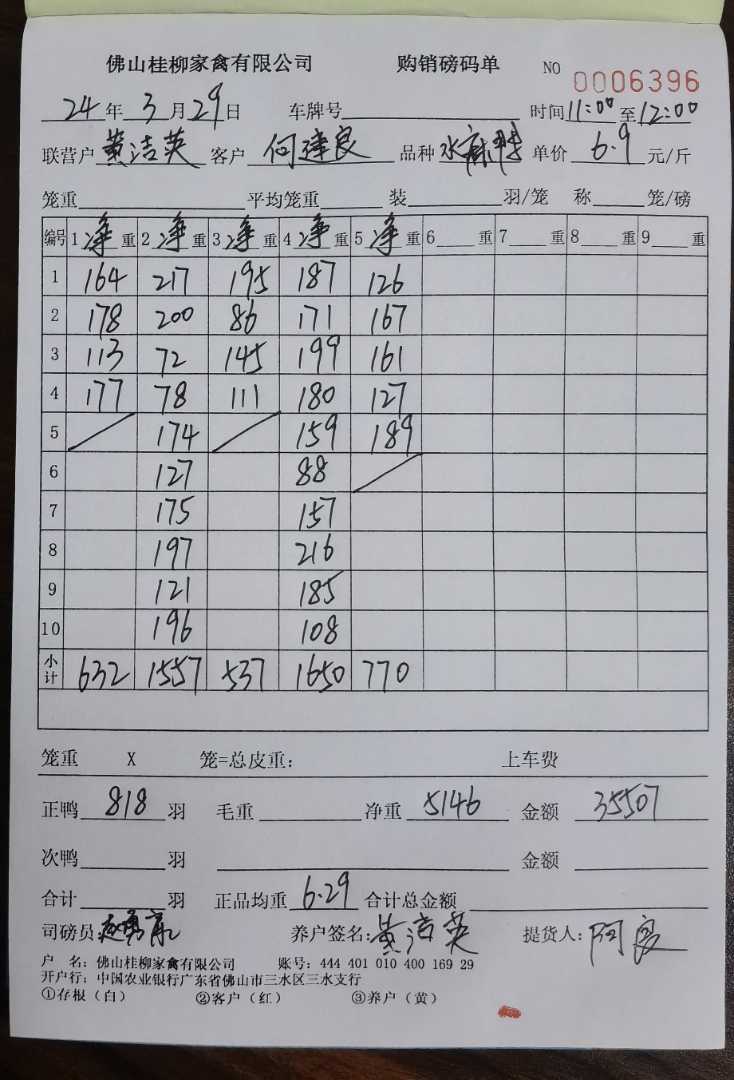 佛山桂柳家禽有限公司 购销磅码单 NO 0006396
24年3月29日 车牌号 时间11:00至12:00
联营户 黄洁英 客户 何建良 品种 水麻鸭 单价 6.9 元/斤
笼重 平均笼重 装 羽/笼 称 笼/磅
编号 1净重 2净重 3净重 4净重 5净重 6 重 7 重 8 重 9 重
1 164 217 195 187 126
2 178 200 86 171 167
3 113 72 145 199 161
4 177 78 111 180 127
5 174 159 189
6 127 88
7 175 157
8 197 216
9 121 185
10 196 108
小计 632 1557 537 1650 770
笼重 X 笼=总皮重: 上车费
正鸭 818 羽 毛重 净重 5146 金额 35507
次鸭 羽 金额
合计 羽 正品均重 6.29 合计总金额
司磅员: 养户签名: 黄洁英 提货人: 阿良
户 名: 佛山桂柳家禽有限公司 账号: 444 401 010 400 169 29
开户行: 中国农业银行广东省佛山市三水区三水支行
①存根（白） ②客户（红） ③养户（黄）